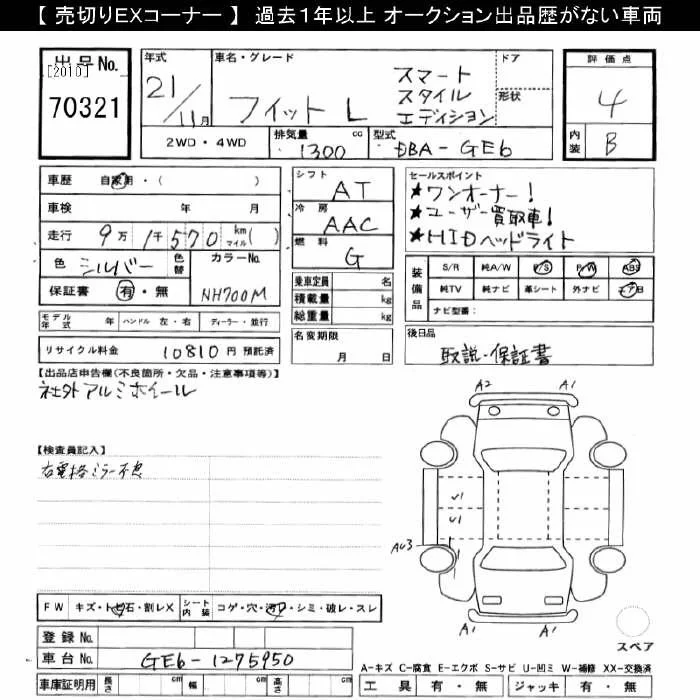 【 売切りEXコーナー 】 過去１年以上 オークション出品歴がない車両
出品No.
[2010]
70321
年式
21/11月
車名・グレード
フィット L
スマート
スタイル
エディション
ドア
形状
評価点
4
内装
B
2WD・4WD
排気量
1300 cc
型式
DBA-GE6
車歴 自家用・( )
車検 年 月
走行 9万1千570 km マイル( )
色 シルバー
色替
カラーNo.
NH700M
保証書 有・無
シフト
AT
冷房
AAC
燃料
G
乗車定員 名
積載量 kg
総重量 kg
セールスポイント
★ワンオーナー!
★ユーザー買取車!
★HIDヘッドライト
装備品
S/R 純A/W P/S P/W ABS
純TV 純ナビ 革シート 外ナビ
ナビ型番:
モデル年式 年 ハンドル 左・右 ディーラー・並行
リサイクル料金 10810 円 預託済
名変期限
月 日
後日品
取説・保証書
【出品店申告欄(不良箇所・欠品・注意事項等)】
社外アルミホイール
【検査員記入】
右電格ミラー不
A2
A1
A1
A1
FW キズ・ 石・割レX
シート内装 コゲ・穴・ ・シミ・破レ・スレ
登録 No.
車台 No. GE6-1275950
車庫証明用 長さ cm 幅 cm 高さ cm
スペア
A-キズ C-腐食 E-エクボ S-サビ U-凹ミ W-補修 XX-交換済
工具 有・無 ジャッキ 有・無